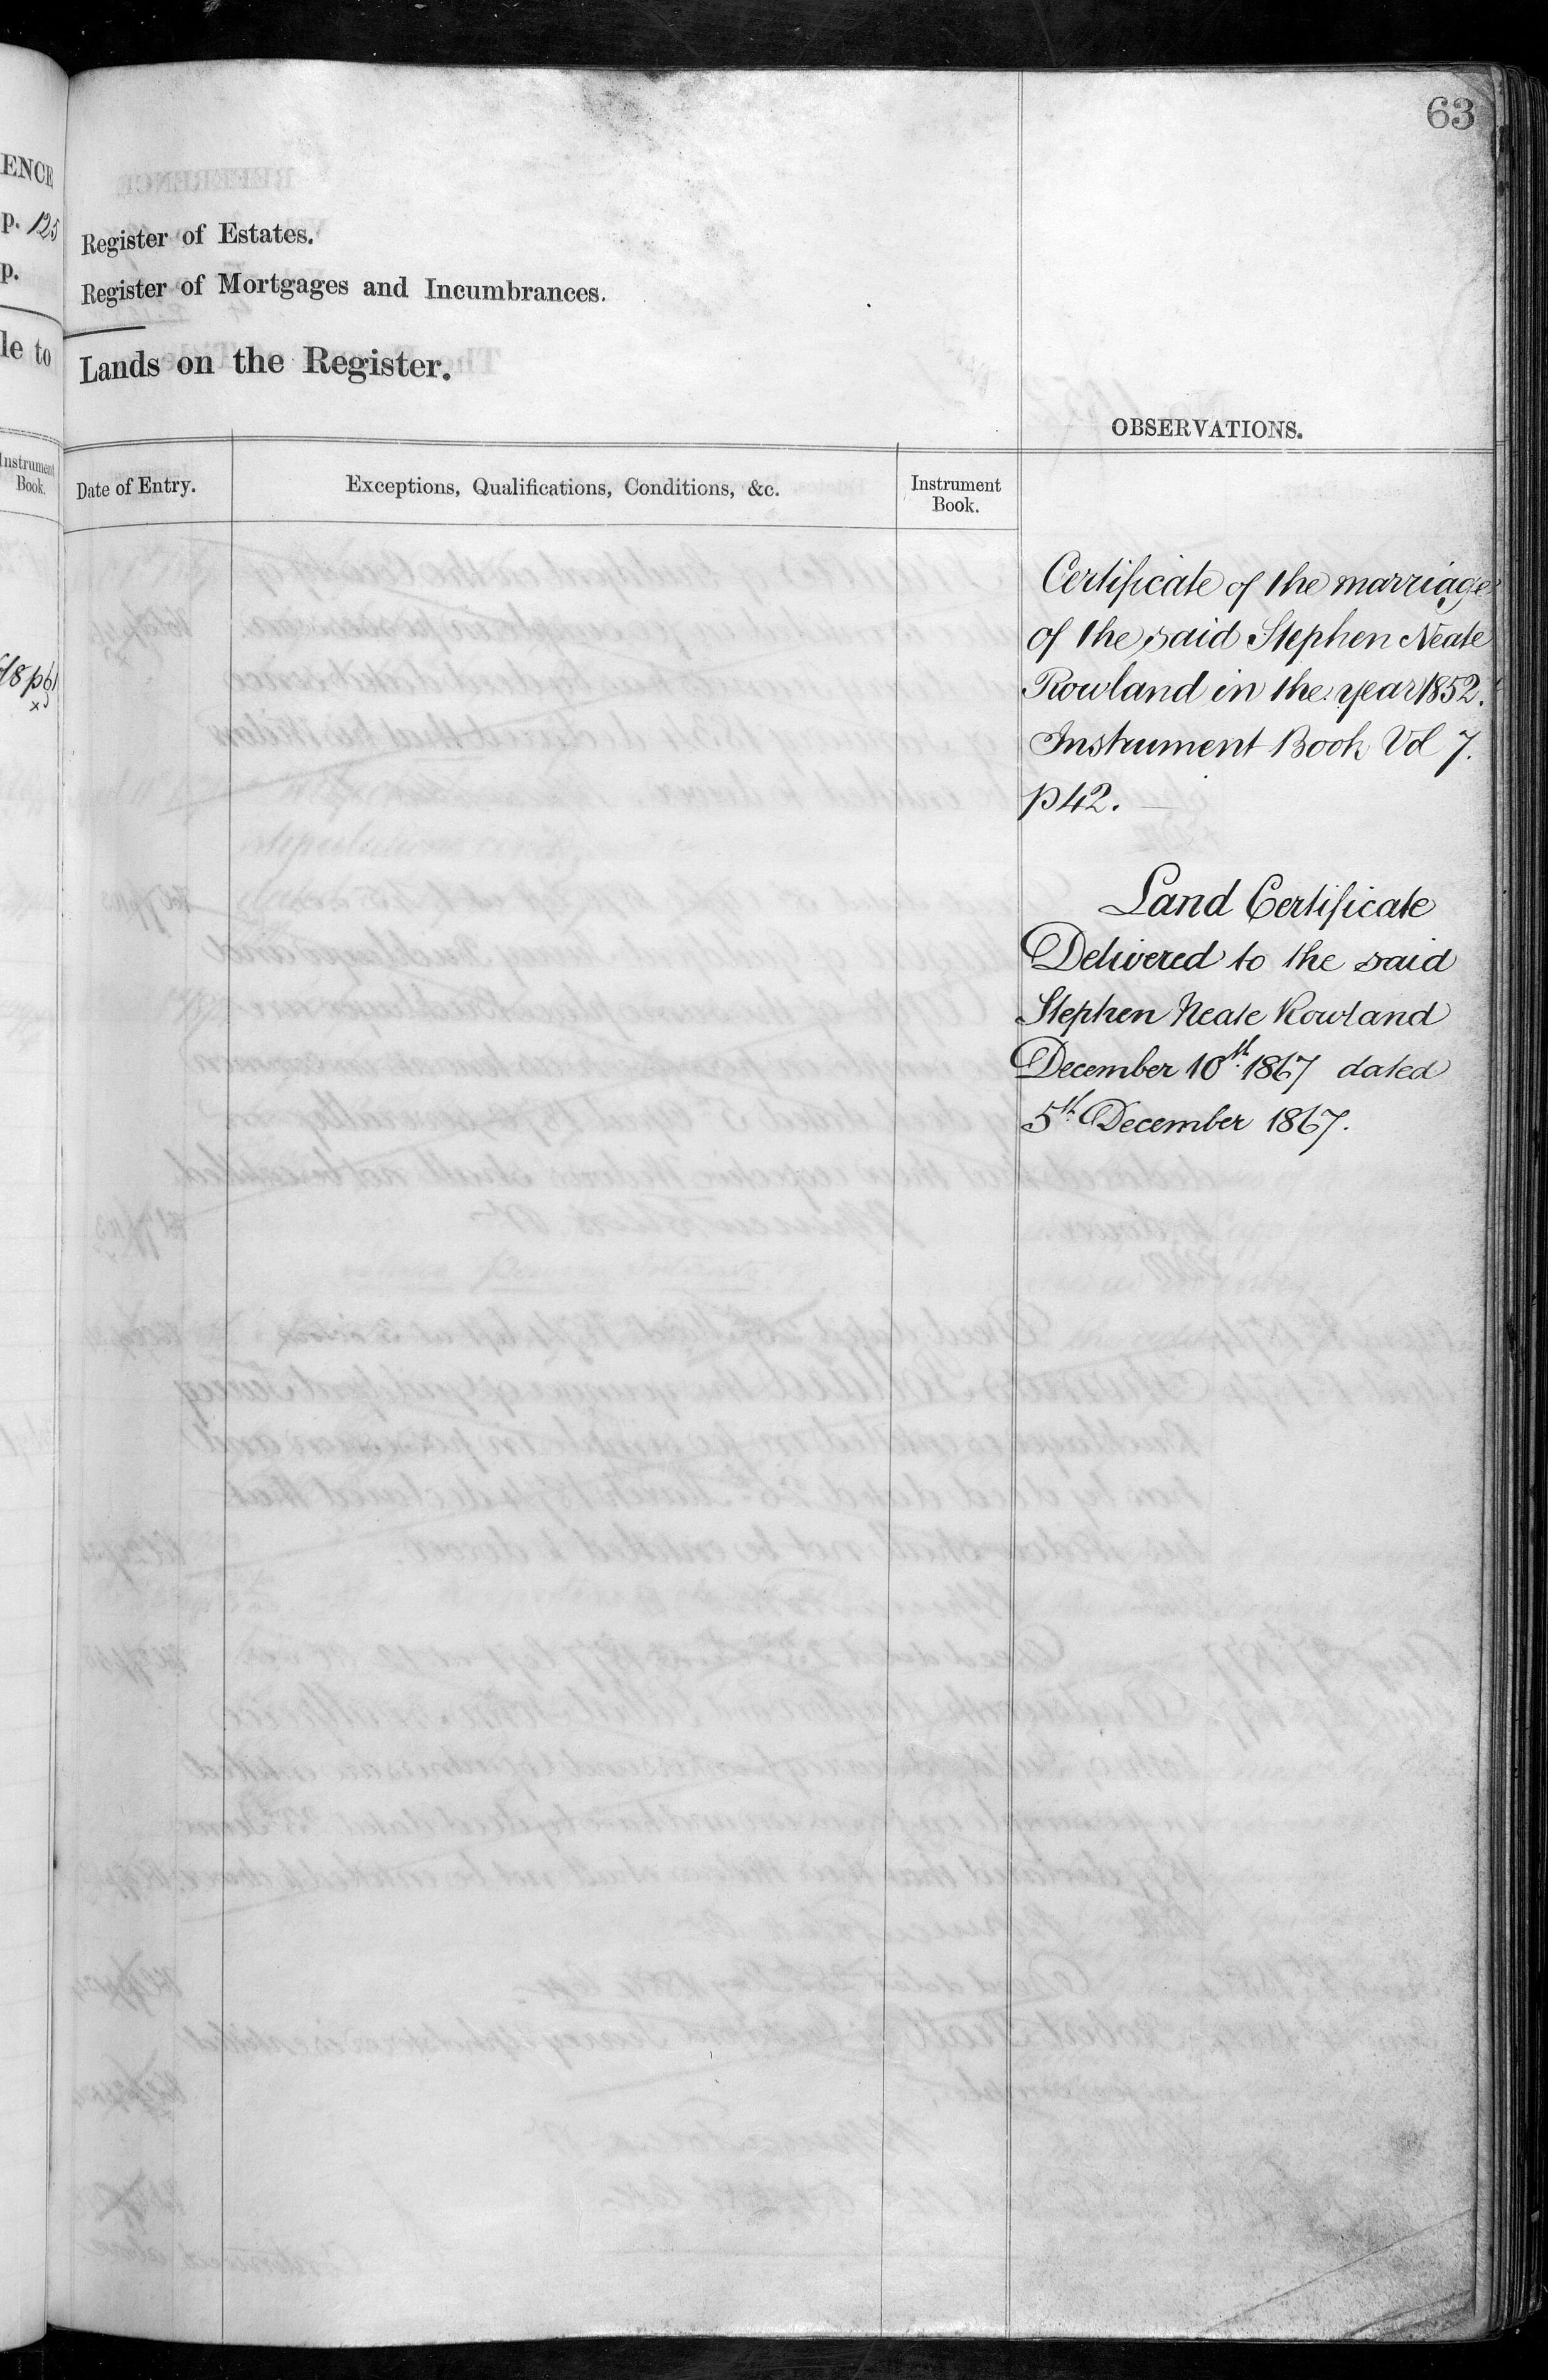 63
ENCE
p. 125
p.
le to
Instrument
Book.
Register of Estates.
Register of Mortgages and Incumbrances.
Lands on the Register.
OBSERVATIONS.
Date of Entry.
Exceptions, Qualifications, Conditions, &c.
Instrument
Book.
Certificate of the marriage
of the said Stephen Neate
Rowland in the year 1852.
Instrument Book Vol 7.
p 42.
Land Certificate
Delivered to the said
Stephen Neate Rowland
December 10th. 1867 dated
5th. December 1867.